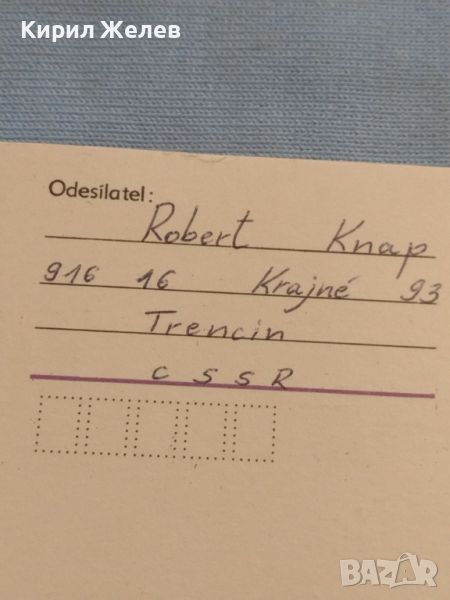 Кирил Желев
Odesílatel:
Robert Knap
916 16 Krajné 93
Trencin
C S S R
BAZAR